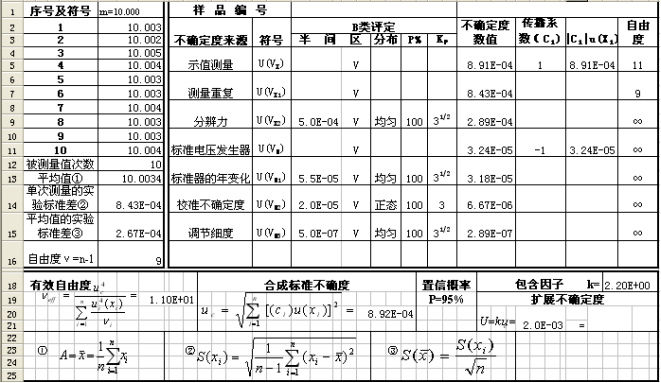 1 序号及符号 m=10.000 样 品 编 号
2 1 10.003 不确定度来源 符号 B类评定 不确定度数值 传播系数(C₁) |C₁|u(X₁) 自由度
3 2 10.002 半 间 区 分布 P% Kₚ
4 3 10.005
5 4 10.004 示值测量 U(Vₓ) V 8.91E-04 1 8.91E-04 11
6 5 10.003
7 6 10.003 测量重复 U(Vₓ₁) V 8.43E-04 9
8 7 10.004
9 8 10.003 分辨力 U(Vₓ₂) 5.0E-04 V 均匀 100 3^1/2 2.89E-04 ∞
10 9 10.003
11 10 10.004 标准电压发生器 V 3.24E-05 -1 3.24E-05 ∞
12 被测量值次数 10
13 平均值① 10.0034 标准器的年变化 5.5E-05 V 均匀 100 3^1/2 3.18E-05 ∞
14 单次测量的实验标准差② 8.43E-04 校准不确定度 2.0E-05 V 正态 100 3 6.67E-06 ∞
15 平均值的实验标准差③ 2.67E-04 调节细度 5.0E-07 V 均匀 100 3^1/2 2.89E-07 ∞
16 自由度ν=n-1 9
18 有效自由度 合成标准不确定度 置信概率 包含因子 k= 2.20E+00
19 1.10E+01 P=95% 扩展不确定度
20 8.92E-04
21 2.0E-03 =
22
23 ① A=x̄=1/n∑xᵢ ② S(xᵢ)=√(1/(n-1)∑(xᵢ-x̄)²) ③ S(x̄)=S(xᵢ)/√n
24
25